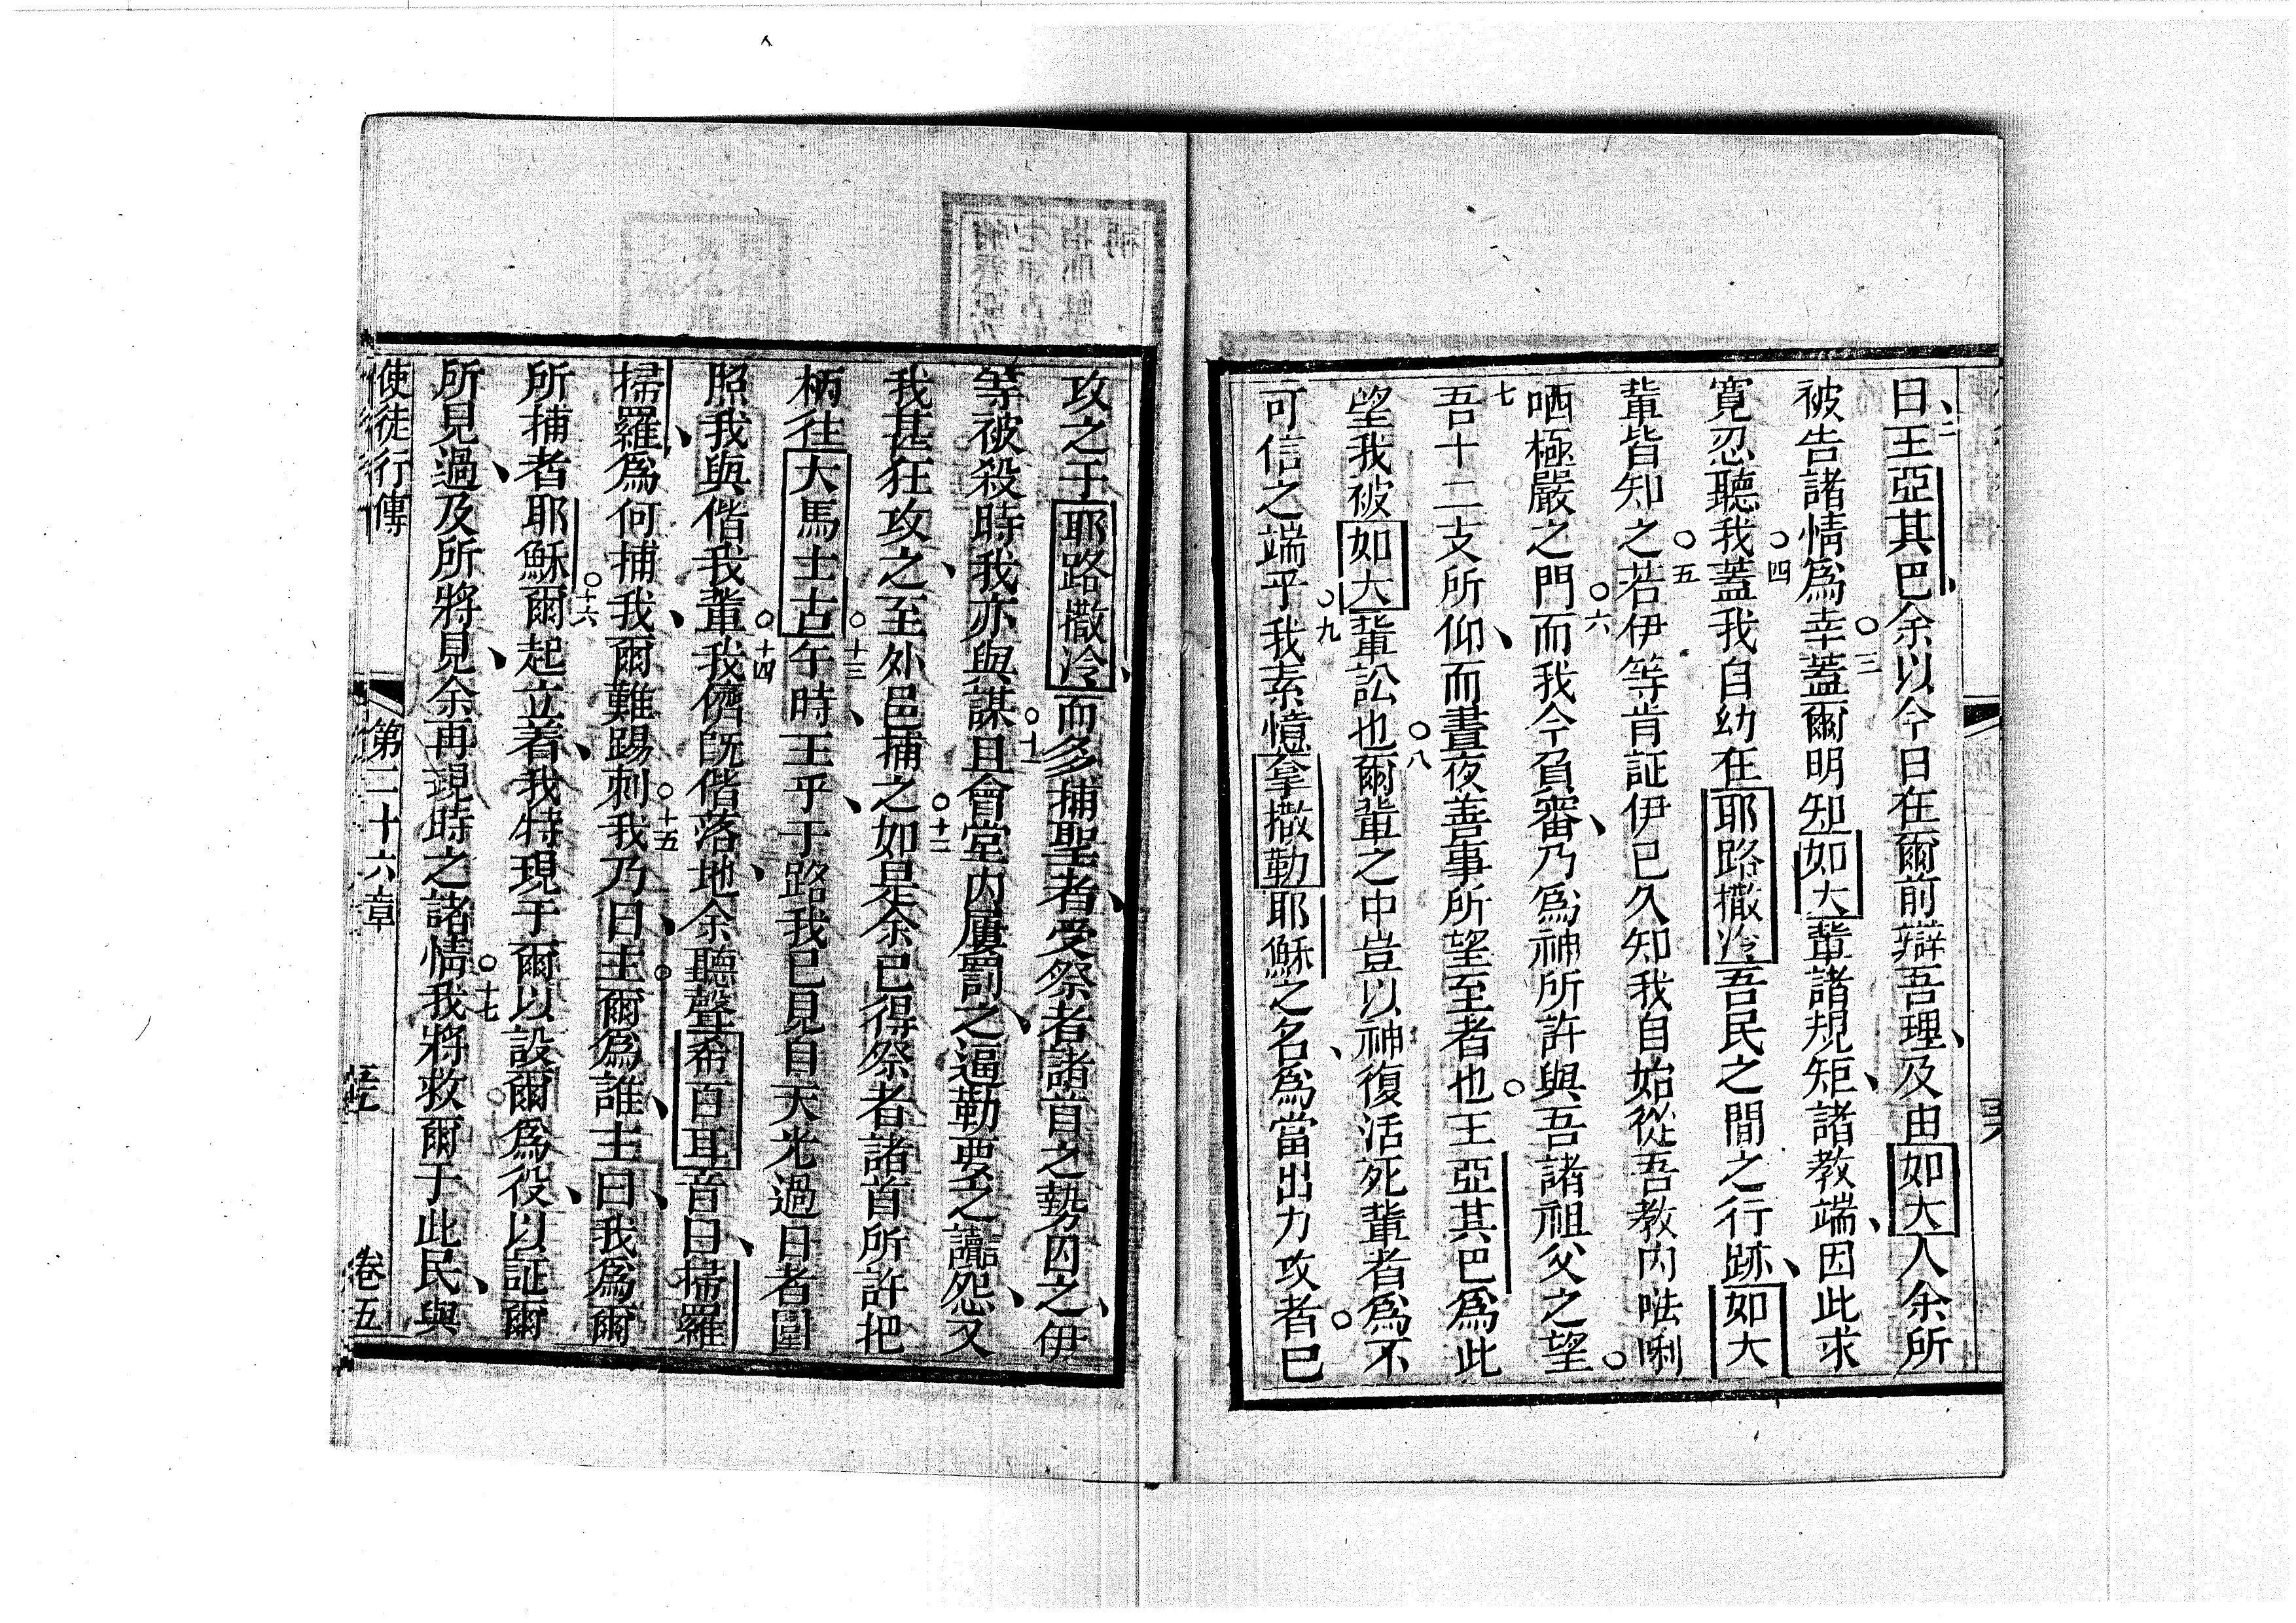 二曰王亞其巴余以今日在爾前辯吾理及由如大人余所
被告諸情為幸三蓋爾明知如大軰諸規矩諸教端因此求
寛忍聽我四蓋我自幼在耶路撒冷吾民之間之行跡如大
軰皆知之五若伊等肯証伊已久知我自始從吾教内𠵽唎
哂極嚴之門六而我今負審乃為神所許與吾諸祖父之望
七吾十二支所仰而晝夜善事所望至者也王亞其巴為此
望我被如大軰訟也八爾軰之中豈以神復活死軰者為不
可信之端乎九我素憶拿撒勒耶穌之名為當出力攻者已
攻之于耶路撒冷而多捕聖者受祭者諸首之勢因之伊
等被殺時我亦與謀十一且會堂内屢罰之逼勒要之讟怨又
我甚狂攻之至外邑捕之十二如是余已得祭者諸首所許把
柄往大馬士古十三午時王乎于路我已見自天光過日者圍
照我與偕我軰十四我儕既偕落地余聽聲希百耳音曰掃羅
掃羅為何捕我爾難踢刺十五我乃曰主爾為誰主曰我為爾
所捕者耶穌十六爾起立着我特現于爾以設爾為役以証爾
所見過及所將見余再現時之諸情十七我將救爾于此民與
使徒行傳 第二十六章 卷五